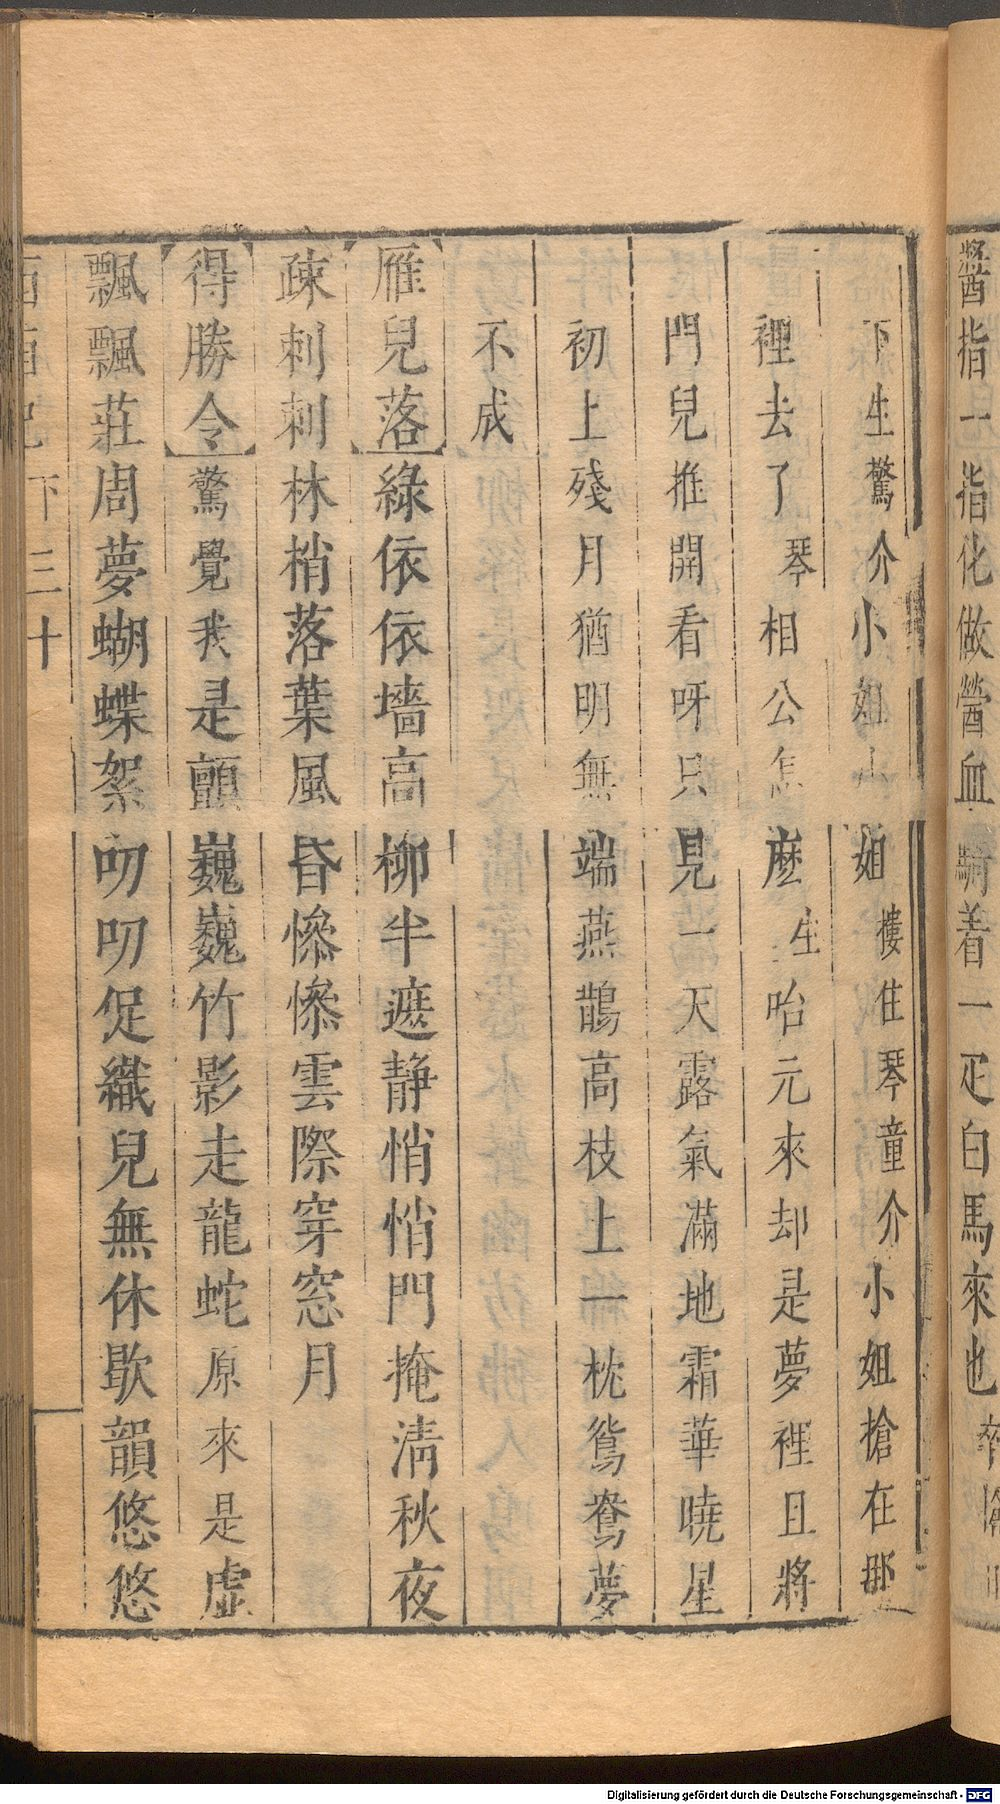 醬指一指化做醟血騎着一疋白馬來也卒
下生驚介小姐小姐摟住琴童介小姐搶在那
裡去了琴相公怎麽生呸元來却是夢裡且將
門兒推開看呀只見一天露氣滿地霜華曉星
初上殘月猶明無端燕鵲高枝上一枕鴛鴦夢
不成
雁兒落綠依依墻高柳半遮靜悄悄門掩淸秋夜
疎刺刺林梢落葉風昏慘慘雲際穿窓月
得勝令驚覺我是顫巍巍竹影走龍蛇原來是虛
飄飄莊周夢蝴蝶絮叨叨促織兒無休歇韻悠悠
西廂記 下 三十
Digitalisierung gefördert durch die Deutsche Forschungsgemeinschaft - DFG